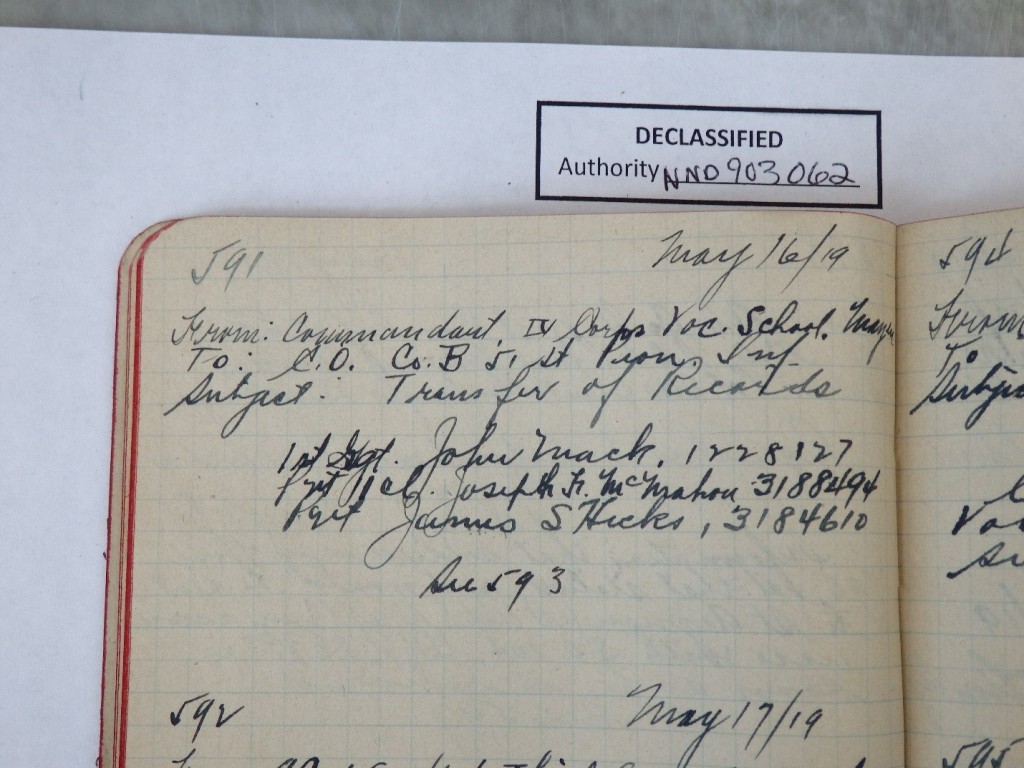 DECLASSIFIED
Authority NND 903062
591 May 16/19
From: Commandant, IV Corps Voc. School,
To: C.O. Co. B 51st Pion. Inf
Subject: Transfer of Records
1st Sgt. John Mack, 1228127
Pvt 1cl. Joseph F. McMahon 3188494
Pvt James S Hicks, 3184610
See 593
592 May 17/19
594
From
To
Subje
Vo
595